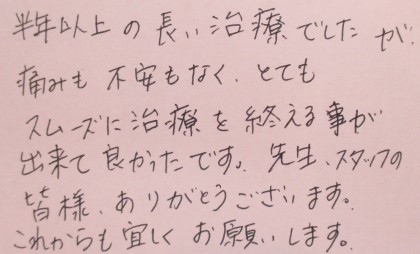 半年以上の長い治療でしたが、
痛みも不安もなく、とても
スムーズに治療を終える事が
出来て良かったです。先生、スタッフの
皆様、ありがとうございます。
これからも宜しくお願いします。